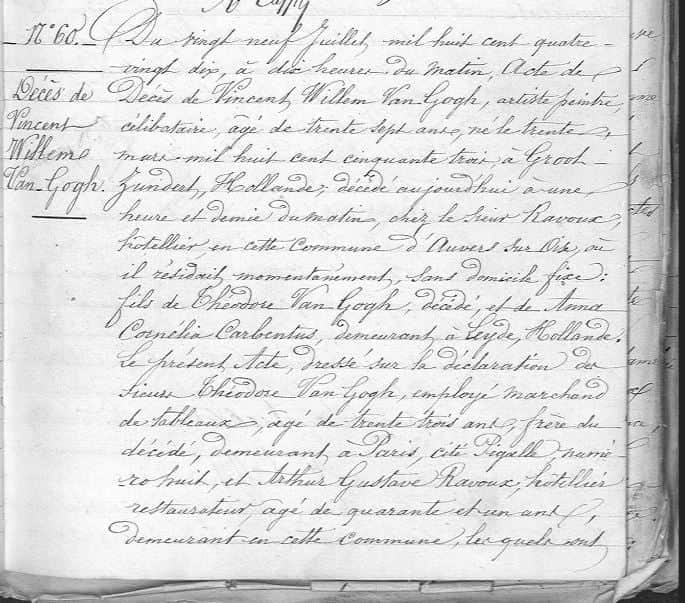 N° 60.
Décès de
Vincent
Willem
Van-Gogh.
Du vingt neuf Juillet, mil huit cent quatre-
vingt dix, à dix heures du matin, Acte de
Décès de Vincent Willem Van Gogh, artiste peintre,
célibataire, âgé de trente sept ans, né le trente
mars mil huit cent cinquante trois à Groot-
Zundert, Hollande; décédé aujourd'hui à une
heure et demie du matin, chez le sieur Ravoux,
hôtellier, en cette Commune d'Auvers sur Oise, où
il résidait momentanément, sans domicile fixe:
fils de Théodore Van Gogh, décédé, et de Anna
Cornélia Carbentus, demeurant à Leyde, Hollande.
Le présent Acte, dressé sur la déclaration des
sieurs Théodore Van Gogh, employé marchand
de tableaux, âgé de trente trois ans, frère du
décédé, demeurant à Paris, cité Pigalle, numé-
ro huit, et Arthur Gustave Ravoux, hôtellier
restaurateur, âgé de quarante et un ans,
demeurant en cette commune, les quels sont